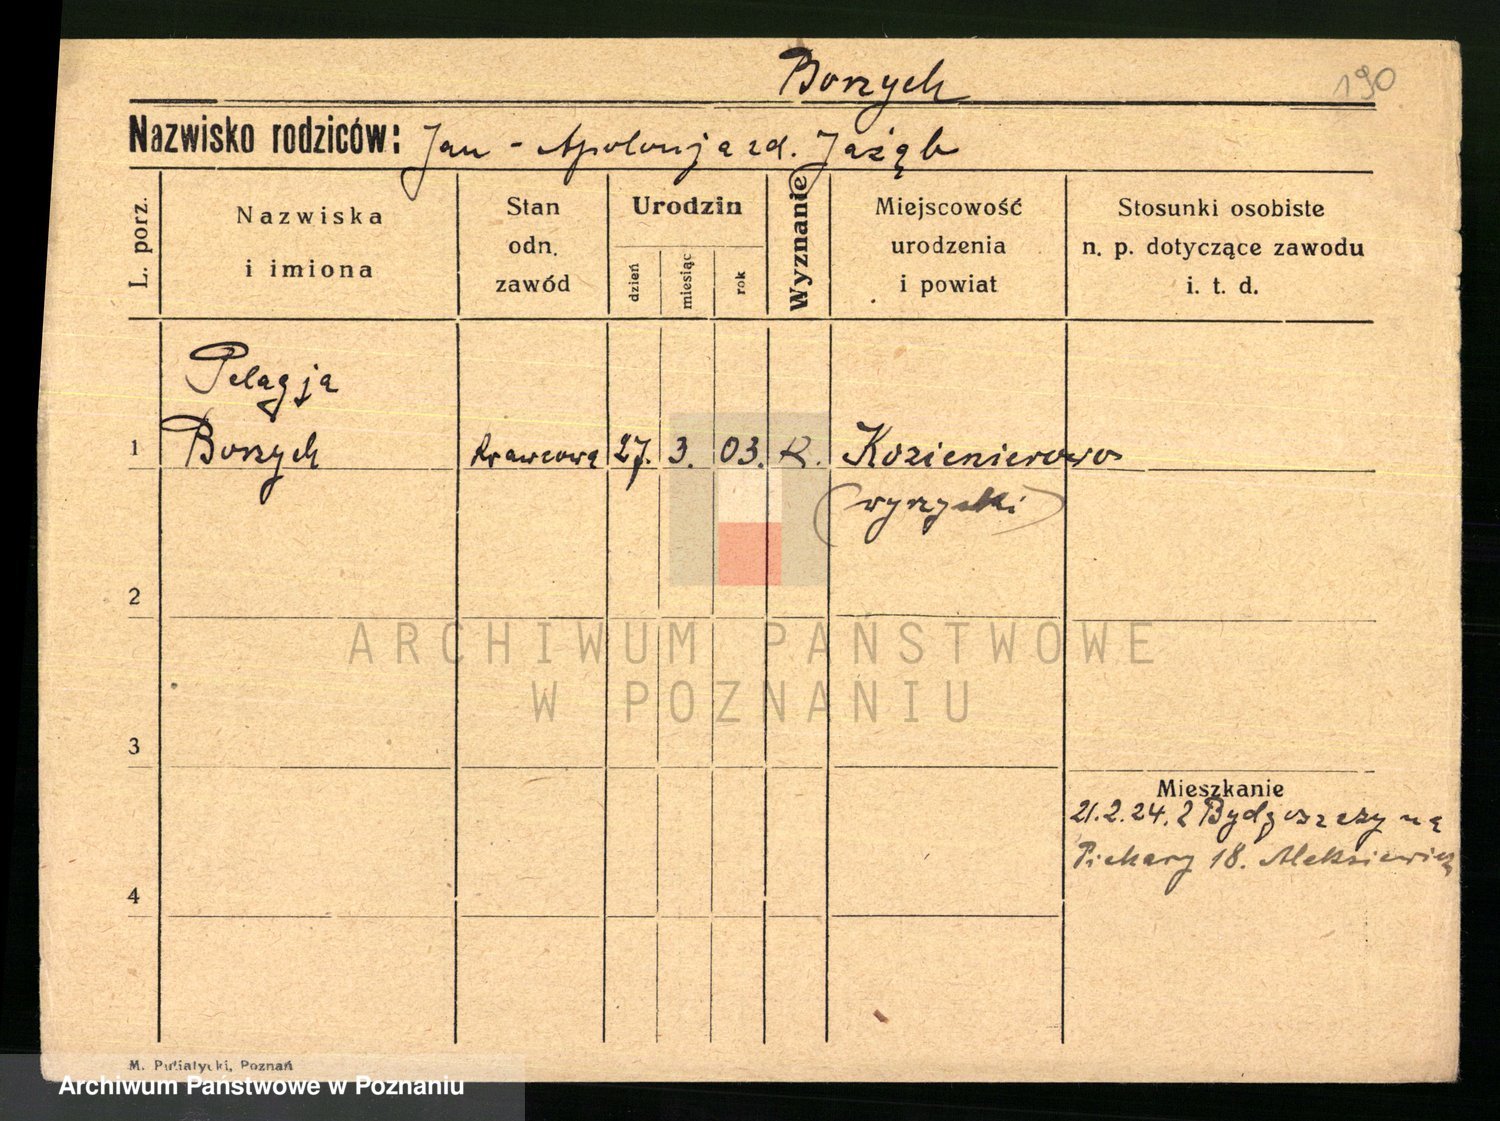 Borzych
190
Nazwisko rodziców: Jan - Apolonja zd. Jażąb
L. porz.
Nazwiska
i imiona
Stan
odn.
zawód
Urodzin
dzień
miesiąc
rok
Wyznanie
Miejscowość
urodzenia
i powiat
Stosunki osobiste
n. p. dotyczące zawodu
i. t. d.
Pelagja
1 Borzych Krawcowa 27. 3. 03. R. Kozienierowo
(wyrzyski)
2
3
4
Mieszkanie
21.2.24. z Bydgoszczy na
Piekary 18. Aleksiewicz
ARCHIWUM PAŃSTWOWE
W POZNANIU
M. Putiatycki, Poznań
Archiwum Państwowe w Poznaniu